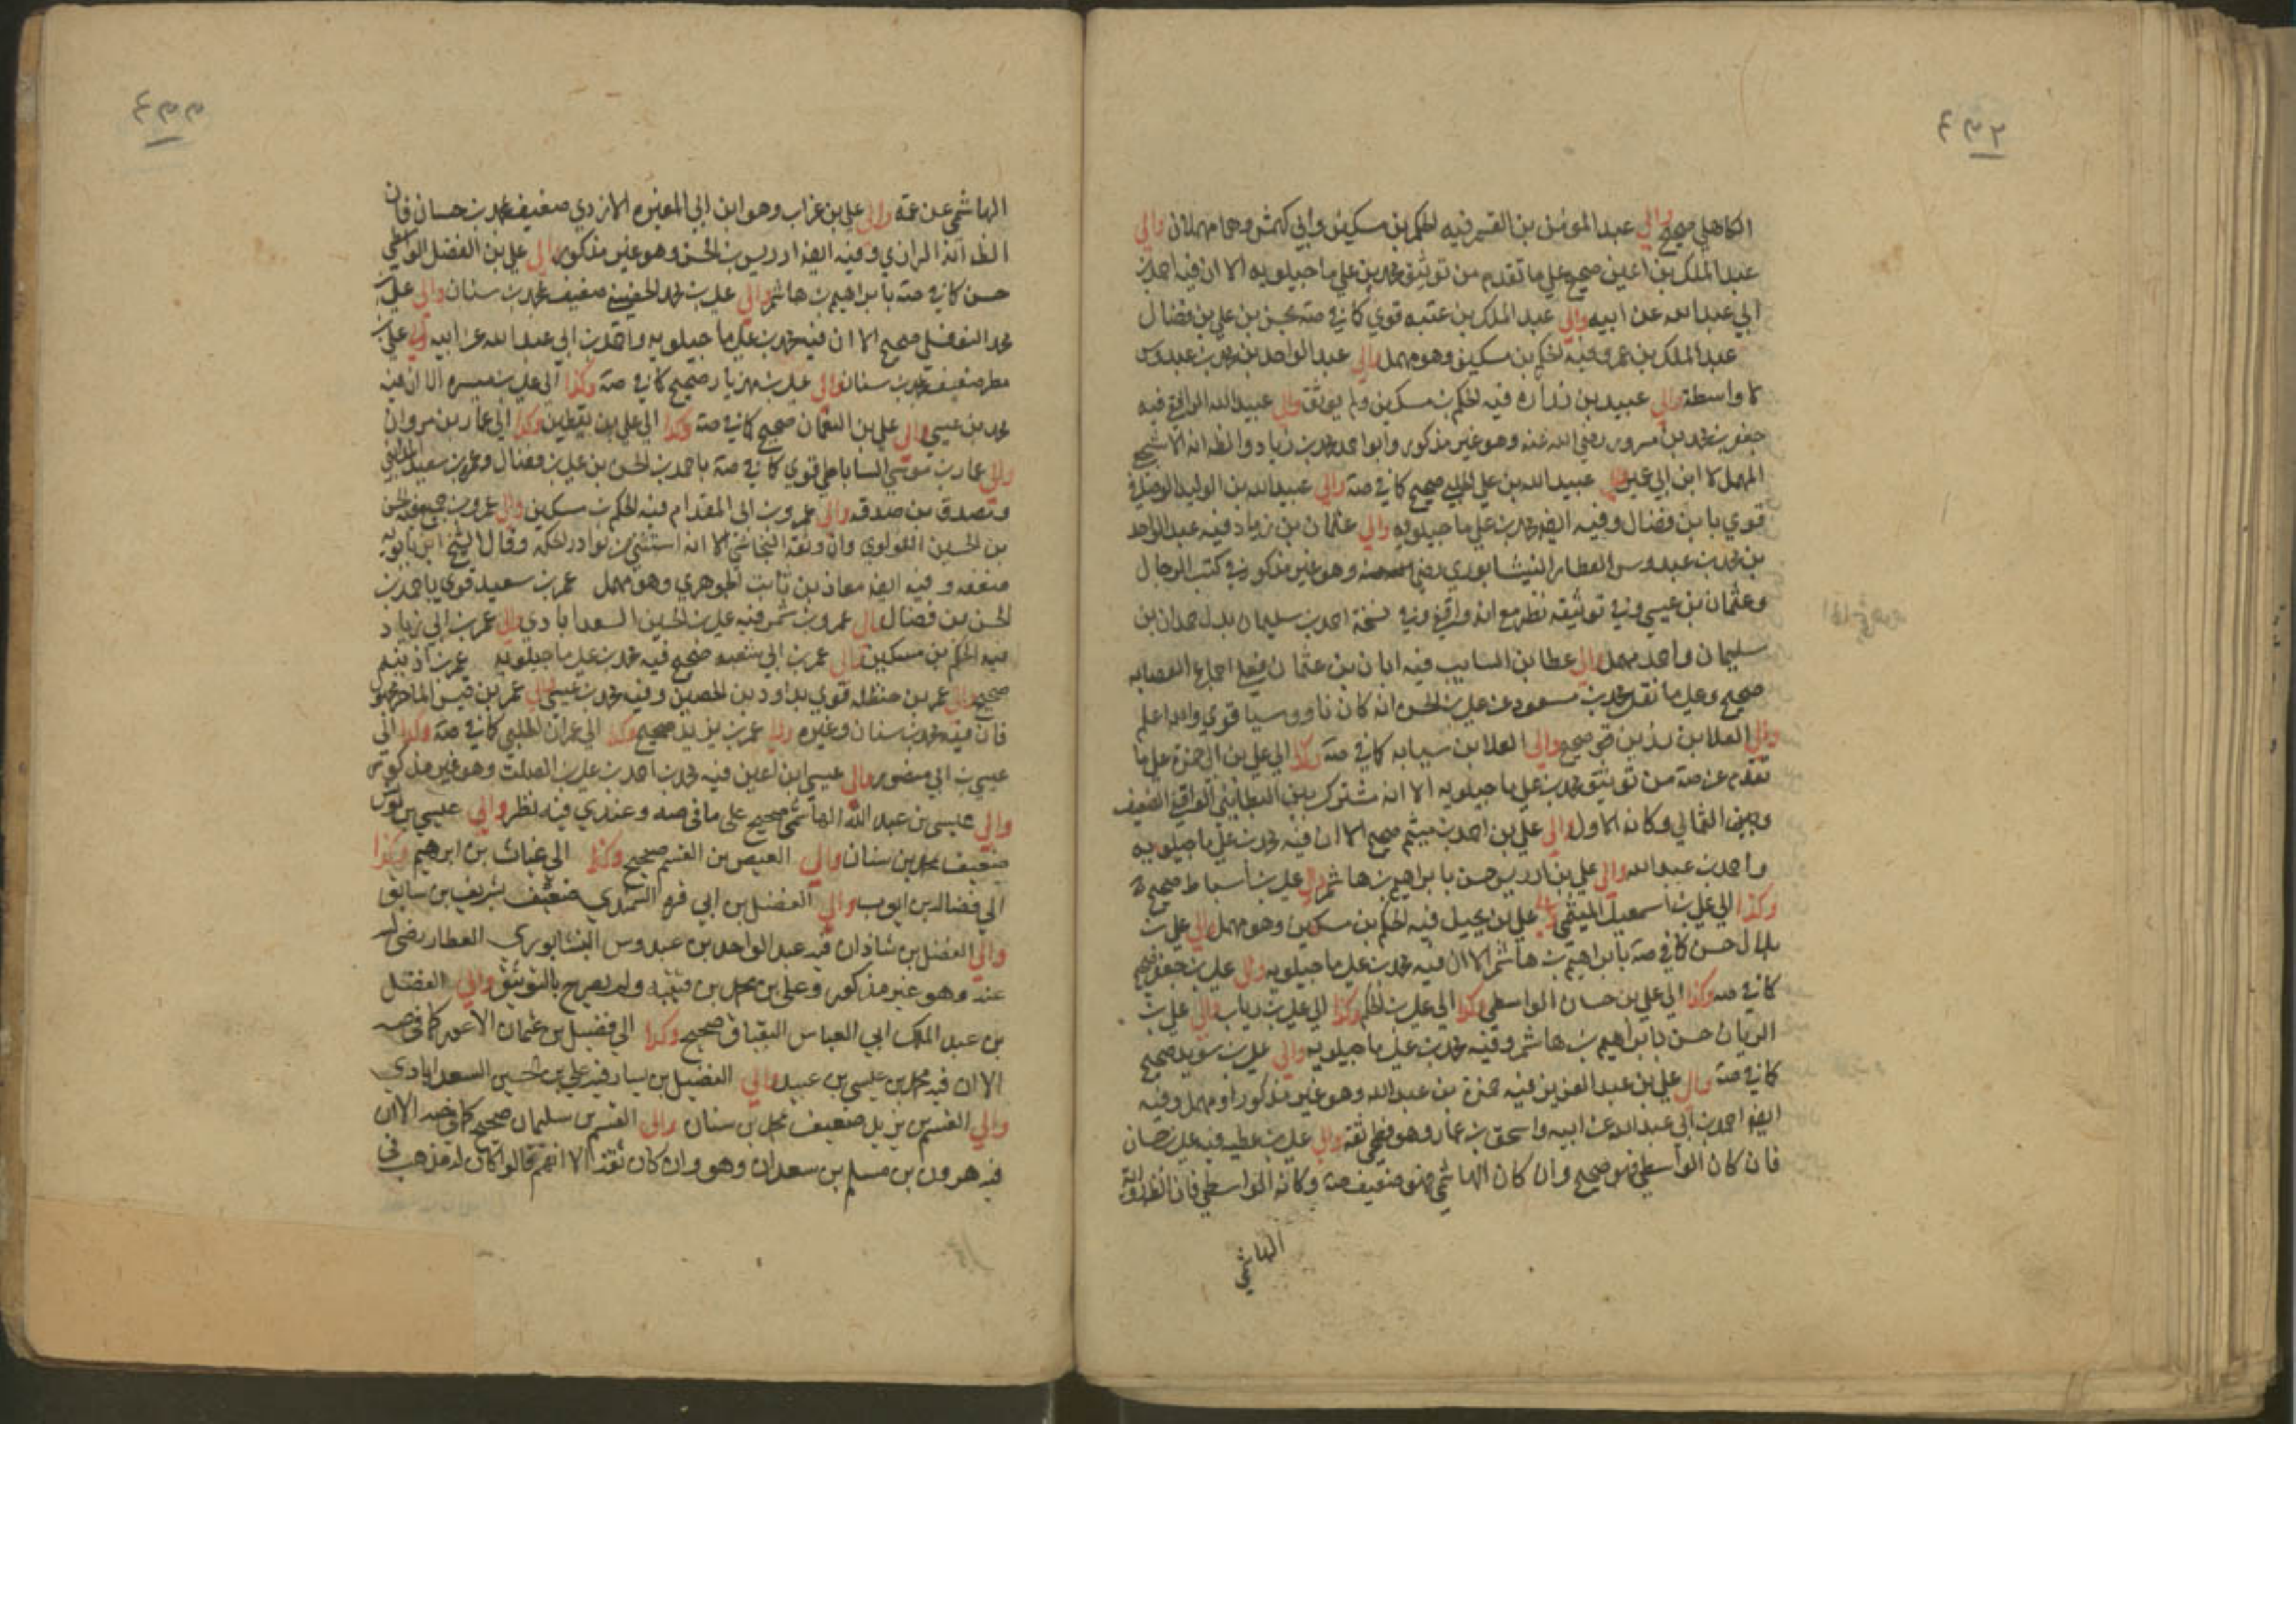 الكاهلي صحيح والي عبد المومن بن القسم فيه الحكم بن مسكين وابي كهمش وهما مهملان والي
عبد الملك بن اعين صحيح علي ما تقدم من توثيق محمد بن علي ماجيلويه الا ان فيه احمد بن
ابي عبد الله عن ابيه والي عبد الملك بن عتبه قوي كما في صه بحسن بن علي بن فضال
عبد الملك بن عمرو فيه الحكم بن مسكين وهو مهمل والي عبد الواحد بن محمد بن عبدوس
لا واسطة والي عبيد بن زراره فيه الحكم بن مسكين ولم يوثقه والي عبيد الله الرافقي فيه
جعفر بن محمد بن مسرور رضي الله عنه وهو غير مذكور وابو احمد محمد بن زياد والظ انه الاشجع
المهمل لا ابن ابي عمير والي عبيد الله بن علي الحلبي صحيح كما في صه والي عبيد الله بن الوليد الوصافي
قوي بابن فضال وفيه ايضا محمد بن علي ماجيلويه والي عثمان بن زياد فيه عبد الواحد
بن محمد بن عبدوس العطار النيشابوري رضي وهو غير مذكور في كتب الرجال
وعثمان بن عيسي وفي توثيقه نظر مع انه واقفي وفي نسخة احمد بن سليمان بدل حمدان بن
سليمان واحمد مهمل والي عطا بن السايب فيه ابان بن عثمان فعلي اجماع العصابه
صحيح وعلي ما نقل محمد بن مسعود عن علي بن الحسن انه كان ناووسيا قوي والله اعلم
والي العلا بن رزين صحيح والي العلا بن سيابه كما في صه وكذا الي علي بن ابي حمزة علي ما
تقدم عن صه من توثيق محمد بن علي ماجيلويه الا انه مشترك بين البطايني الواقفي الضعيف
وبين الثمالي وكانه الاول والي علي بن احمد بن ميثم صحيح الا ان فيه محمد بن علي ماجيلويه
واحمد بن عبد الله والي علي بن ادريس حسن بابراهيم بن هاشم والي علي بن اسباط صحيح
وكذا الي علي بن اسمعيل الميثمي والي علي بن بجيل فيه الحكم بن مسكين وهو مهمل والي علي بن
بلال حسن كما في صه بابراهيم بن هاشم الا ان فيه محمد بن علي ماجيلويه والي علي بن جعفر صحيح
كما في صه وكذا الي علي بن حسان الواسطي وكذا الي علي بن الحكم وكذا الي علي بن رياب والي علي بن
الريان حسن بابراهيم بن هاشم وفيه محمد بن علي ماجيلويه والي علي بن سويد صحيح
كما في صه والي علي بن عبد العزيز فيه حمزة بن عبد الله وهو غير مذكور او مهمل وفيه
ايضا احمد بن ابي عبد الله عن ابيه واسحق بن عمار وهو فطحي ثقة والي علي بن عطيه فيه علي بن حسان
فان كان الواسطي فهو صحيح وان كان الهاشمي فهو ضعيف صه وكانه الواسطي فان الظ
الهاشمي
الهاشمي عن عمه والي علي بن غراب وهو ابن ابي المغيره الازدي ضعيف بمحمد بن حسان فان
الظ انه الرازي وفيه ايضا ادريس بن الحسن وهو غير مذكور والي علي بن الفضل الواسطي
حسن كما في صه بابراهيم بن هاشم والي علي بن محمد الحضيني ضعيف بمحمد بن سنان والي علي بن
محمد النوفلي صحيح الا ان فيه محمد بن علي ماجيلويه واحمد بن ابي عبد الله عن ابيه والي علي بن
مطر ضعيف بمحمد بن سنان والي علي بن مهزيار صحيح كما في صه وكذا الي علي بن ميسره الا ان فيه
محمد بن عيسي والي علي بن النعمان صحيح كما في صه وكذا الي علي بن يقطين وكذا الي عمار بن مروان
والي عمار بن موسي الساباطي قوي كما في صه باحمد بن الحسن بن علي بن فضال وعمرو بن سعيد المدايني
ومصدق بن صدقه والي عمرو بن ابي المقدام فيه الحكم بن مسكين والي عمرو بن جميع فيه الحسن
بن الحسين اللولوي وان وثقه النجاشي الا انه استثني من نوادر الحكمه وقال الشيخ ابن بابويه
ضعفه وفيه ايضا معاذ بن ثابت الجوهري وهو مهمل عمرو بن سعيد قوي باحمد بن
الحسن بن فضال والي عمرو بن شمر فيه علي بن الحسين السعدابادي والي عمر بن ابي زياد
فيه الحكم بن مسكين والي عمر بن ابي شعبه صحيح فيه محمد بن علي ماجيلويه عمر بن اذينه
صحيح والي عمر بن حنظله قوي بداود بن الحصين وفيه محمد بن عيسي والي عمر بن قيس الماصر
فان فيه محمد بن سنان وغيره والي عمر بن يزيد صحيح وكذا الي عمران الحلبي كما في صه وكذا الي
عيسي بن ابي منصور والي عيسي بن اعين فيه محمد بن احمد بن علي بن الصلت وهو غير مذكور
والي عيسى بن عبد الله الهاشمي صحيح على ما في صه وعندي فيه نظر والي عيسي بن يونس
ضعيف بمحمد بن سنان والي العيص بن القسم صحيح وكذا الى غياث بن ابرهيم وكذا
الي فضاله بن ايوب والي الفضل بن ابي قره السمندي ضعيف بشريف بن سابق
والي الفضل بن شاذان فيه عبد الواحد بن عبدوس النيشابوري العطار رضى الله
عنه وهو غير مذكور وعلى بن محمد بن قتيبه ولم يصرح بالتوثيق والي الفضل
بن عبد الملك ابي العباس البقباق صحيح وكذا الي فضيل بن عثمان الاعور كما في صه
الا ان فيه محمد بن عيسى بن عبيد والي الفضيل بن يسار فيه علي بن الحسين السعدابادي
والي القسم بن بريد ضعيف بمحمد بن سنان والى القسم بن سليمان صحيح كما في صه الا ان
فيه هرون بن مسلم بن سعدان وهو وان كان ثقة الا انهم قالوا كان له مذهب في